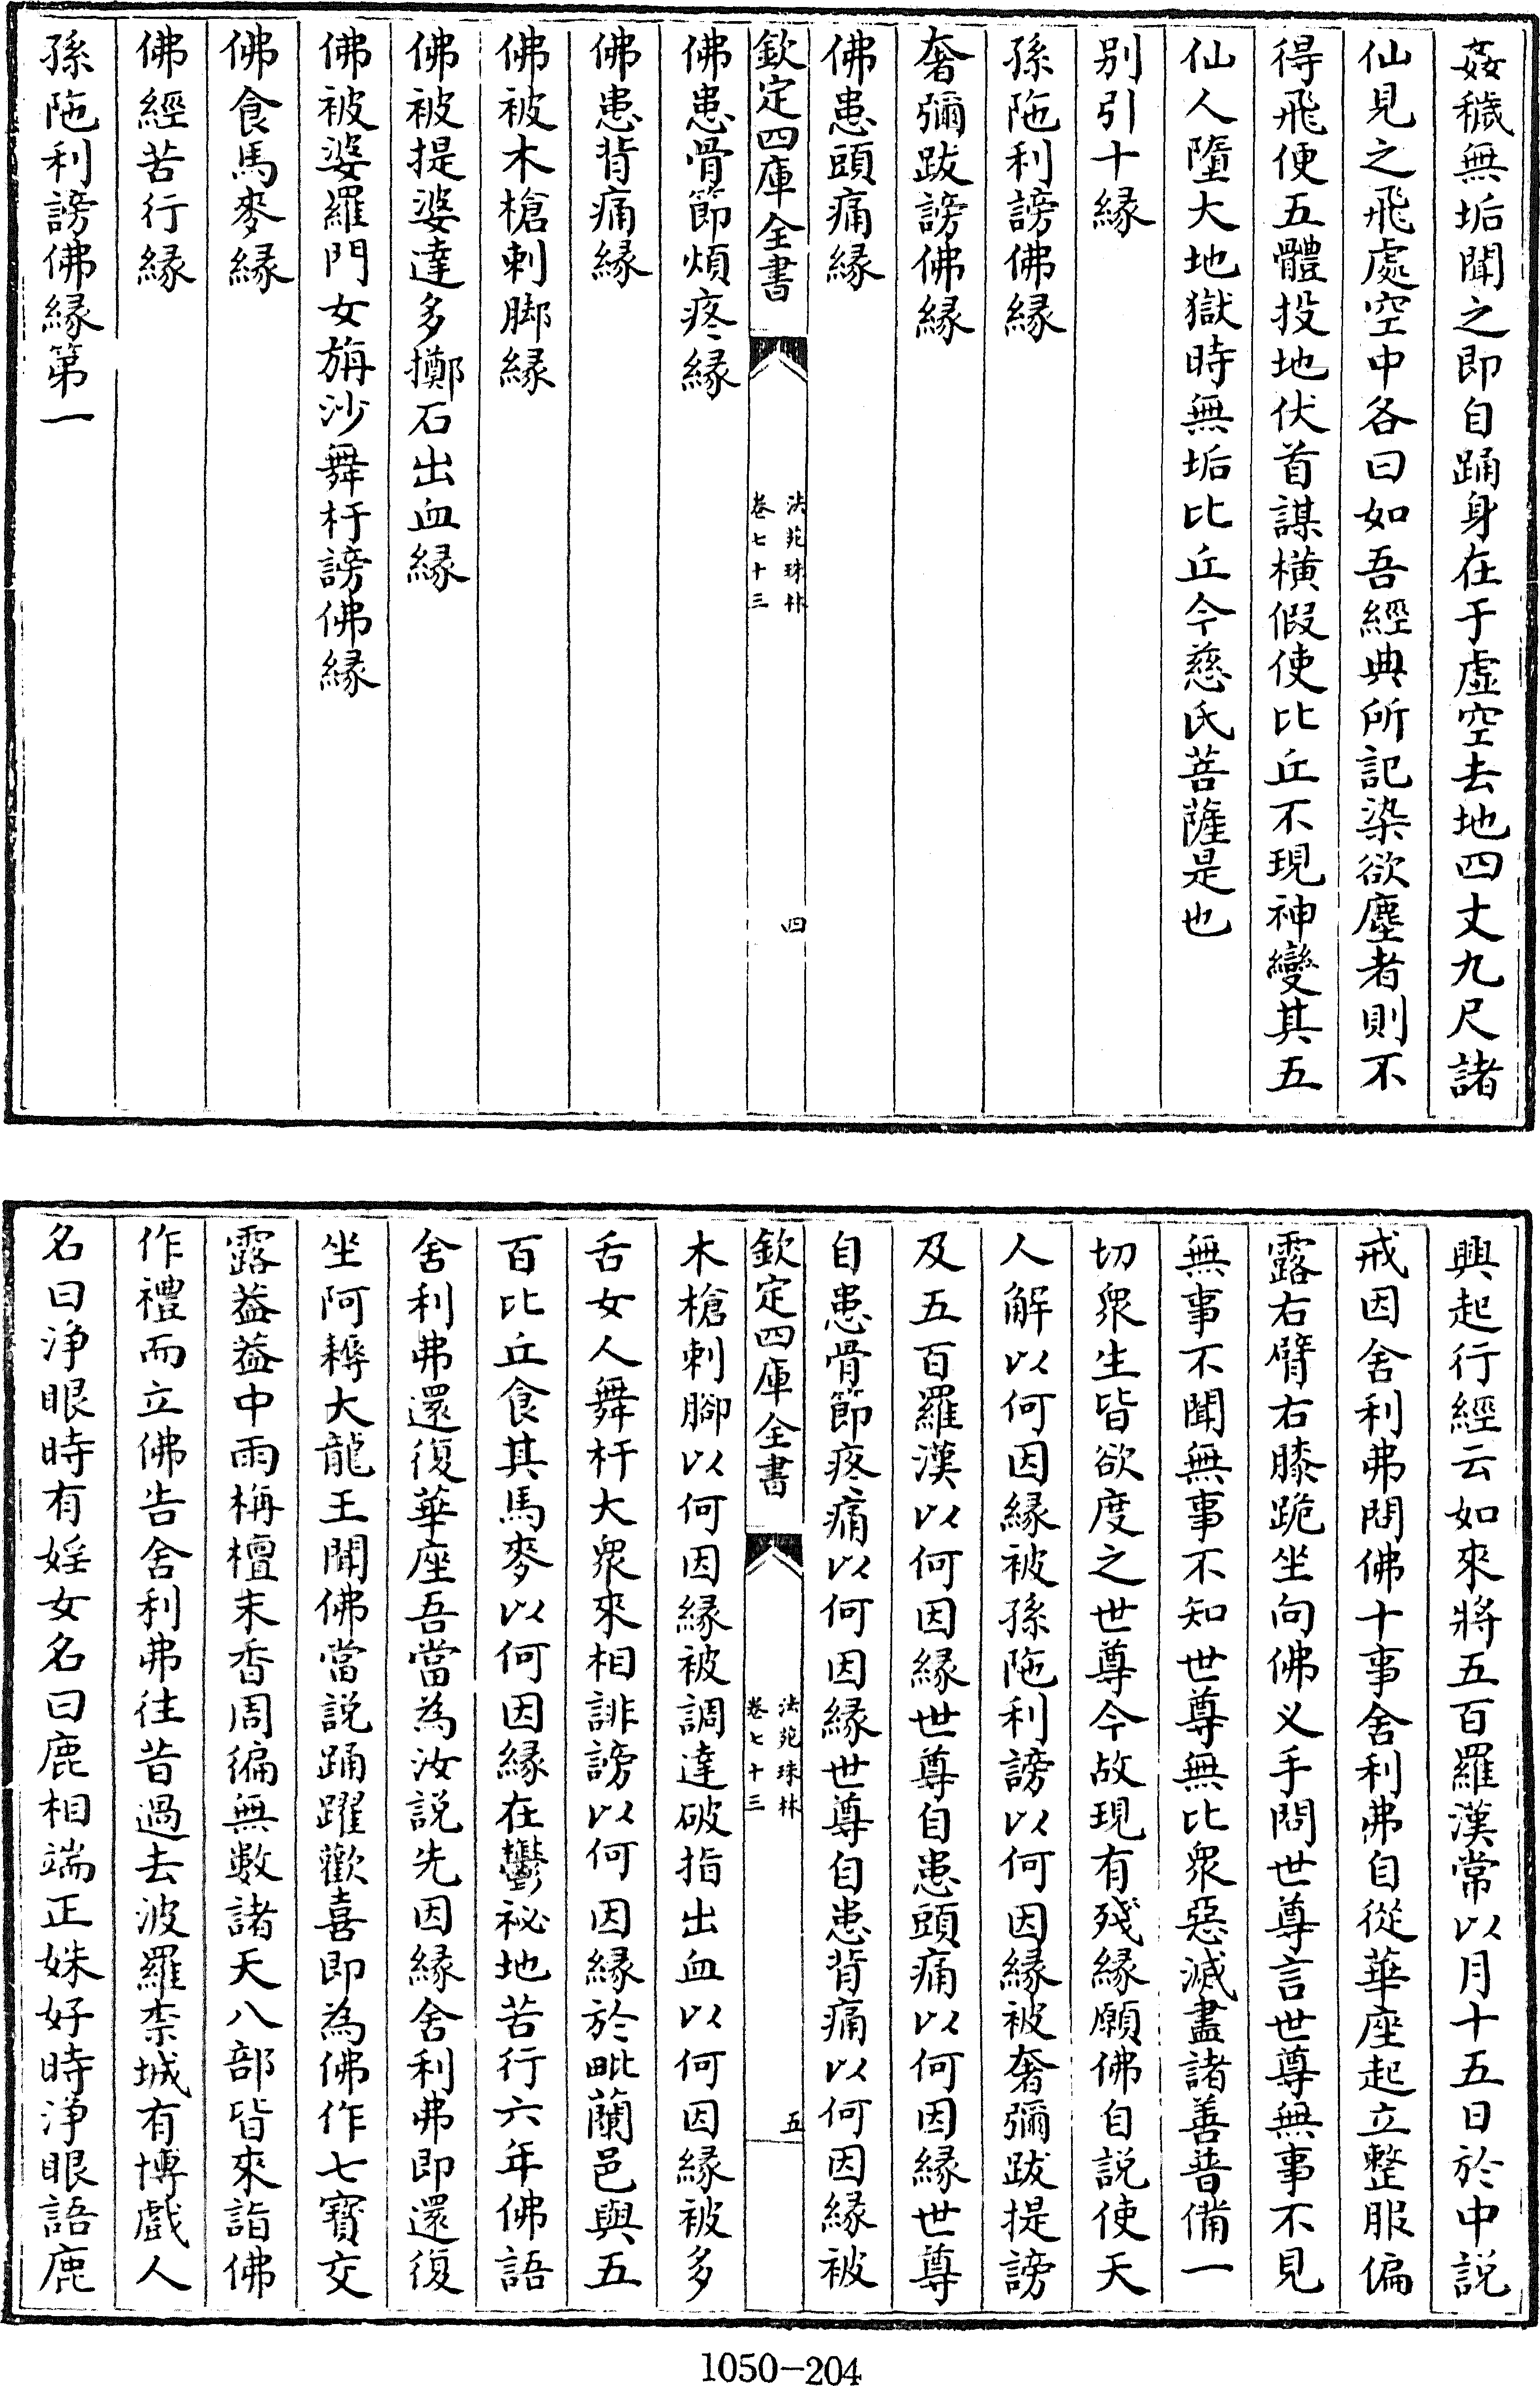 姦穢無垢聞之即自踊身在于虛空去地四丈九尺諸
仙見之飛處空中各曰如吾經典所記染欲塵者則不
得飛便五體投地伏首謀橫假使比丘不現神變其五
仙人墮大地獄時無垢比丘今慈氏菩薩是也
别引十縁
孫陁利謗佛縁
奢彌跋謗佛縁
佛患頭痛縁
欽定四庫全書
法苑珠林
卷七十三
四
佛患骨節煩疼縁
佛患背痛縁
佛被木槍刺脚縁
佛被提婆達多擲石出血縁
佛被婆羅門女旃沙舞杅謗佛縁
佛食馬麥縁
佛經苦行縁
孫陁利謗佛縁第一
興起行經云如來將五百羅漢常以月十五日於中説
戒因舍利弗問佛十事舍利弗自從華座起立整服偏
露右臂右膝跪坐向佛义手問世尊言世尊無事不見
無事不聞無事不知世尊無比衆惡滅盡諸善普備一
切衆生皆欲度之世尊今故現有殘縁願佛自説使天
人解以何因縁被孫陁利謗以何因縁被奢彌跋提謗
及五百羅漢以何因縁世尊自患頭痛以何因縁世尊
自患骨節疼痛以何因縁世尊自患背痛以何因縁被
欽定四庫全書
法苑珠林
卷七十三
五
木槍刺腳以何因縁被調達破指出血以何因縁被多
舌女人舞杅大衆來相誹謗以何因縁於毗蘭邑與五
百比丘食其馬麥以何因縁在鬱祕地苦行六年佛語
舍利弗還復華座吾當為汝説先因縁舍利弗即還復
坐阿耨大龍王聞佛當説踊躍歡喜即為佛作七寶交
露葢葢中雨栴檀末香周徧無數諸天八部皆來詣佛
作禮而立佛告舍利弗往昔過去波羅柰城有博戲人
名曰浄眼時有婬女名曰鹿相端正姝好時浄眼語鹿
1050-204